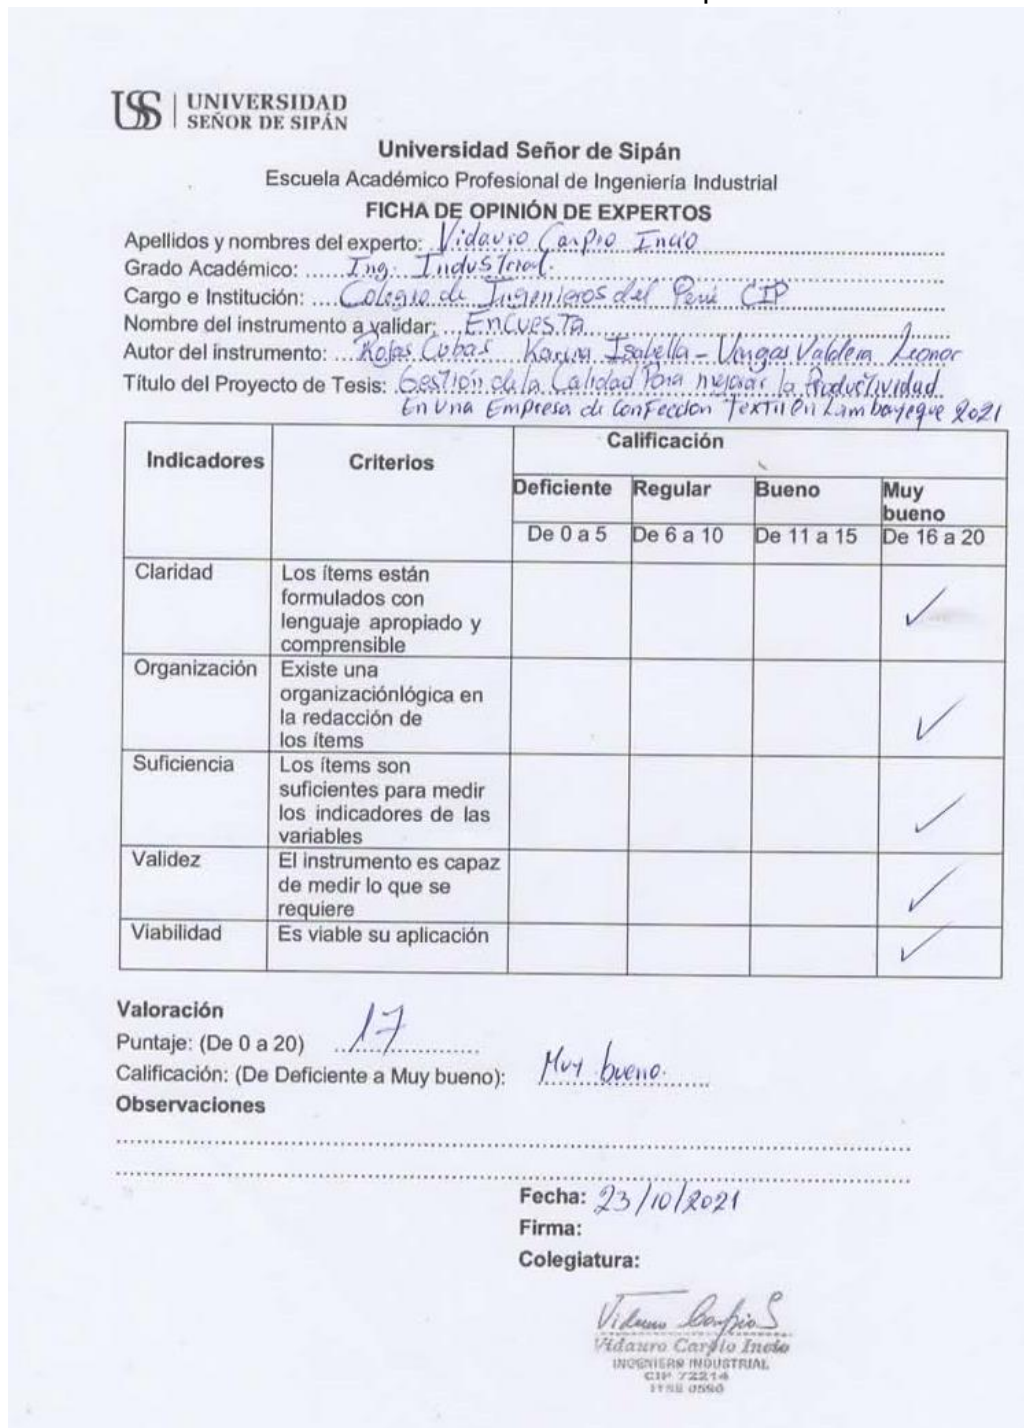 USS | UNIVERSIDAD
SEÑOR DE SIPÁN
Universidad Señor de Sipán
Escuela Académico Profesional de Ingeniería Industrial
FICHA DE OPINIÓN DE EXPERTOS
Apellidos y nombres del experto: Vidauro Carpio Incio
Grado Académico: Ing. Industrial.
Cargo e Institución: Colegio de Ingenieros del Perú CIP
Nombre del instrumento a validar: Encuesta
Autor del instrumento: Rojas Cubas Karina Isabella - Vargas Valdera Leonor
Título del Proyecto de Tesis: Gestión de la Calidad Para mejorar la Productividad
En Una Empresa de Confección Textil En Lambayeque 2021
Indicadores Criterios Calificación
Deficiente Regular Bueno Muy bueno
De 0 a 5 De 6 a 10 De 11 a 15 De 16 a 20
Claridad Los ítems están
formulados con
lenguaje apropiado y
comprensible ✓
Organización Existe una
organizaciónlógica en
la redacción de
los ítems ✓
Suficiencia Los ítems son
suficientes para medir
los indicadores de las
variables ✓
Validez El instrumento es capaz
de medir lo que se
requiere ✓
Viabilidad Es viable su aplicación ✓
Valoración
Puntaje: (De 0 a 20) 17
Calificación: (De Deficiente a Muy bueno): Muy bueno.
Observaciones
Fecha: 23/10/2021
Firma:
Colegiatura:
Vidauro Carpio
Vidauro Carpio Incio
INGENIERO INDUSTRIAL
CIP 72214